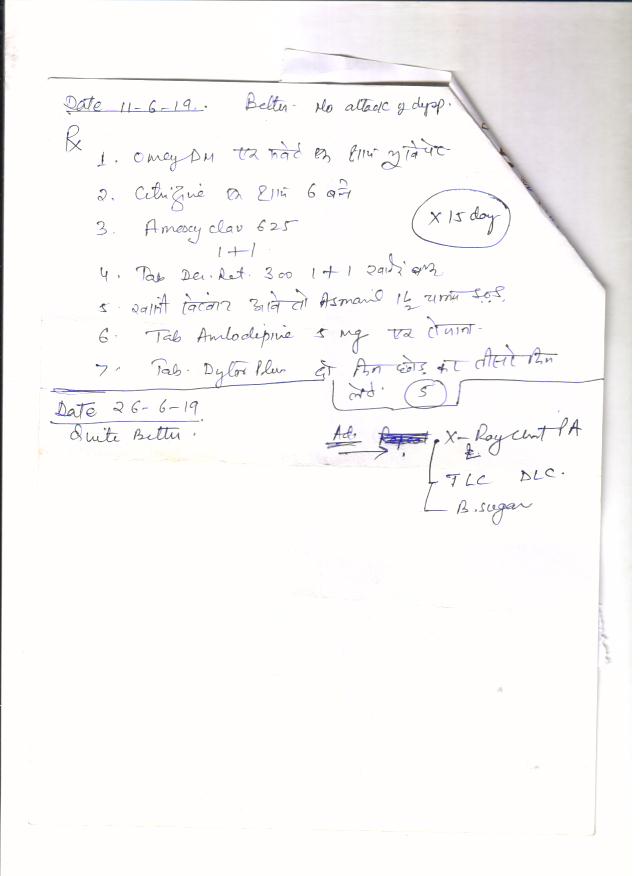 Date 11-6-19. Better. No attack of dysp.
Rx
1. Omez DM एक सवेरे एक शाम
2. Citrizine एक शाम 6 बजे
3. Amoxy clav 625
1+1
X 15 day
4. Tab Deri. Ret. 300 1+1
5. खांसी आवे तो 1½ S.O.S.
6. Tab Amlodipine 5 mg एक रोजाना.
7. Tab. Dytor Plus दो दिन छोड़ कर तीसरे दिन
5
Date 26-6-19
Quite Better.
Adv. Repeat X-Ray Chest PA
TLC DLC.
B. sugar